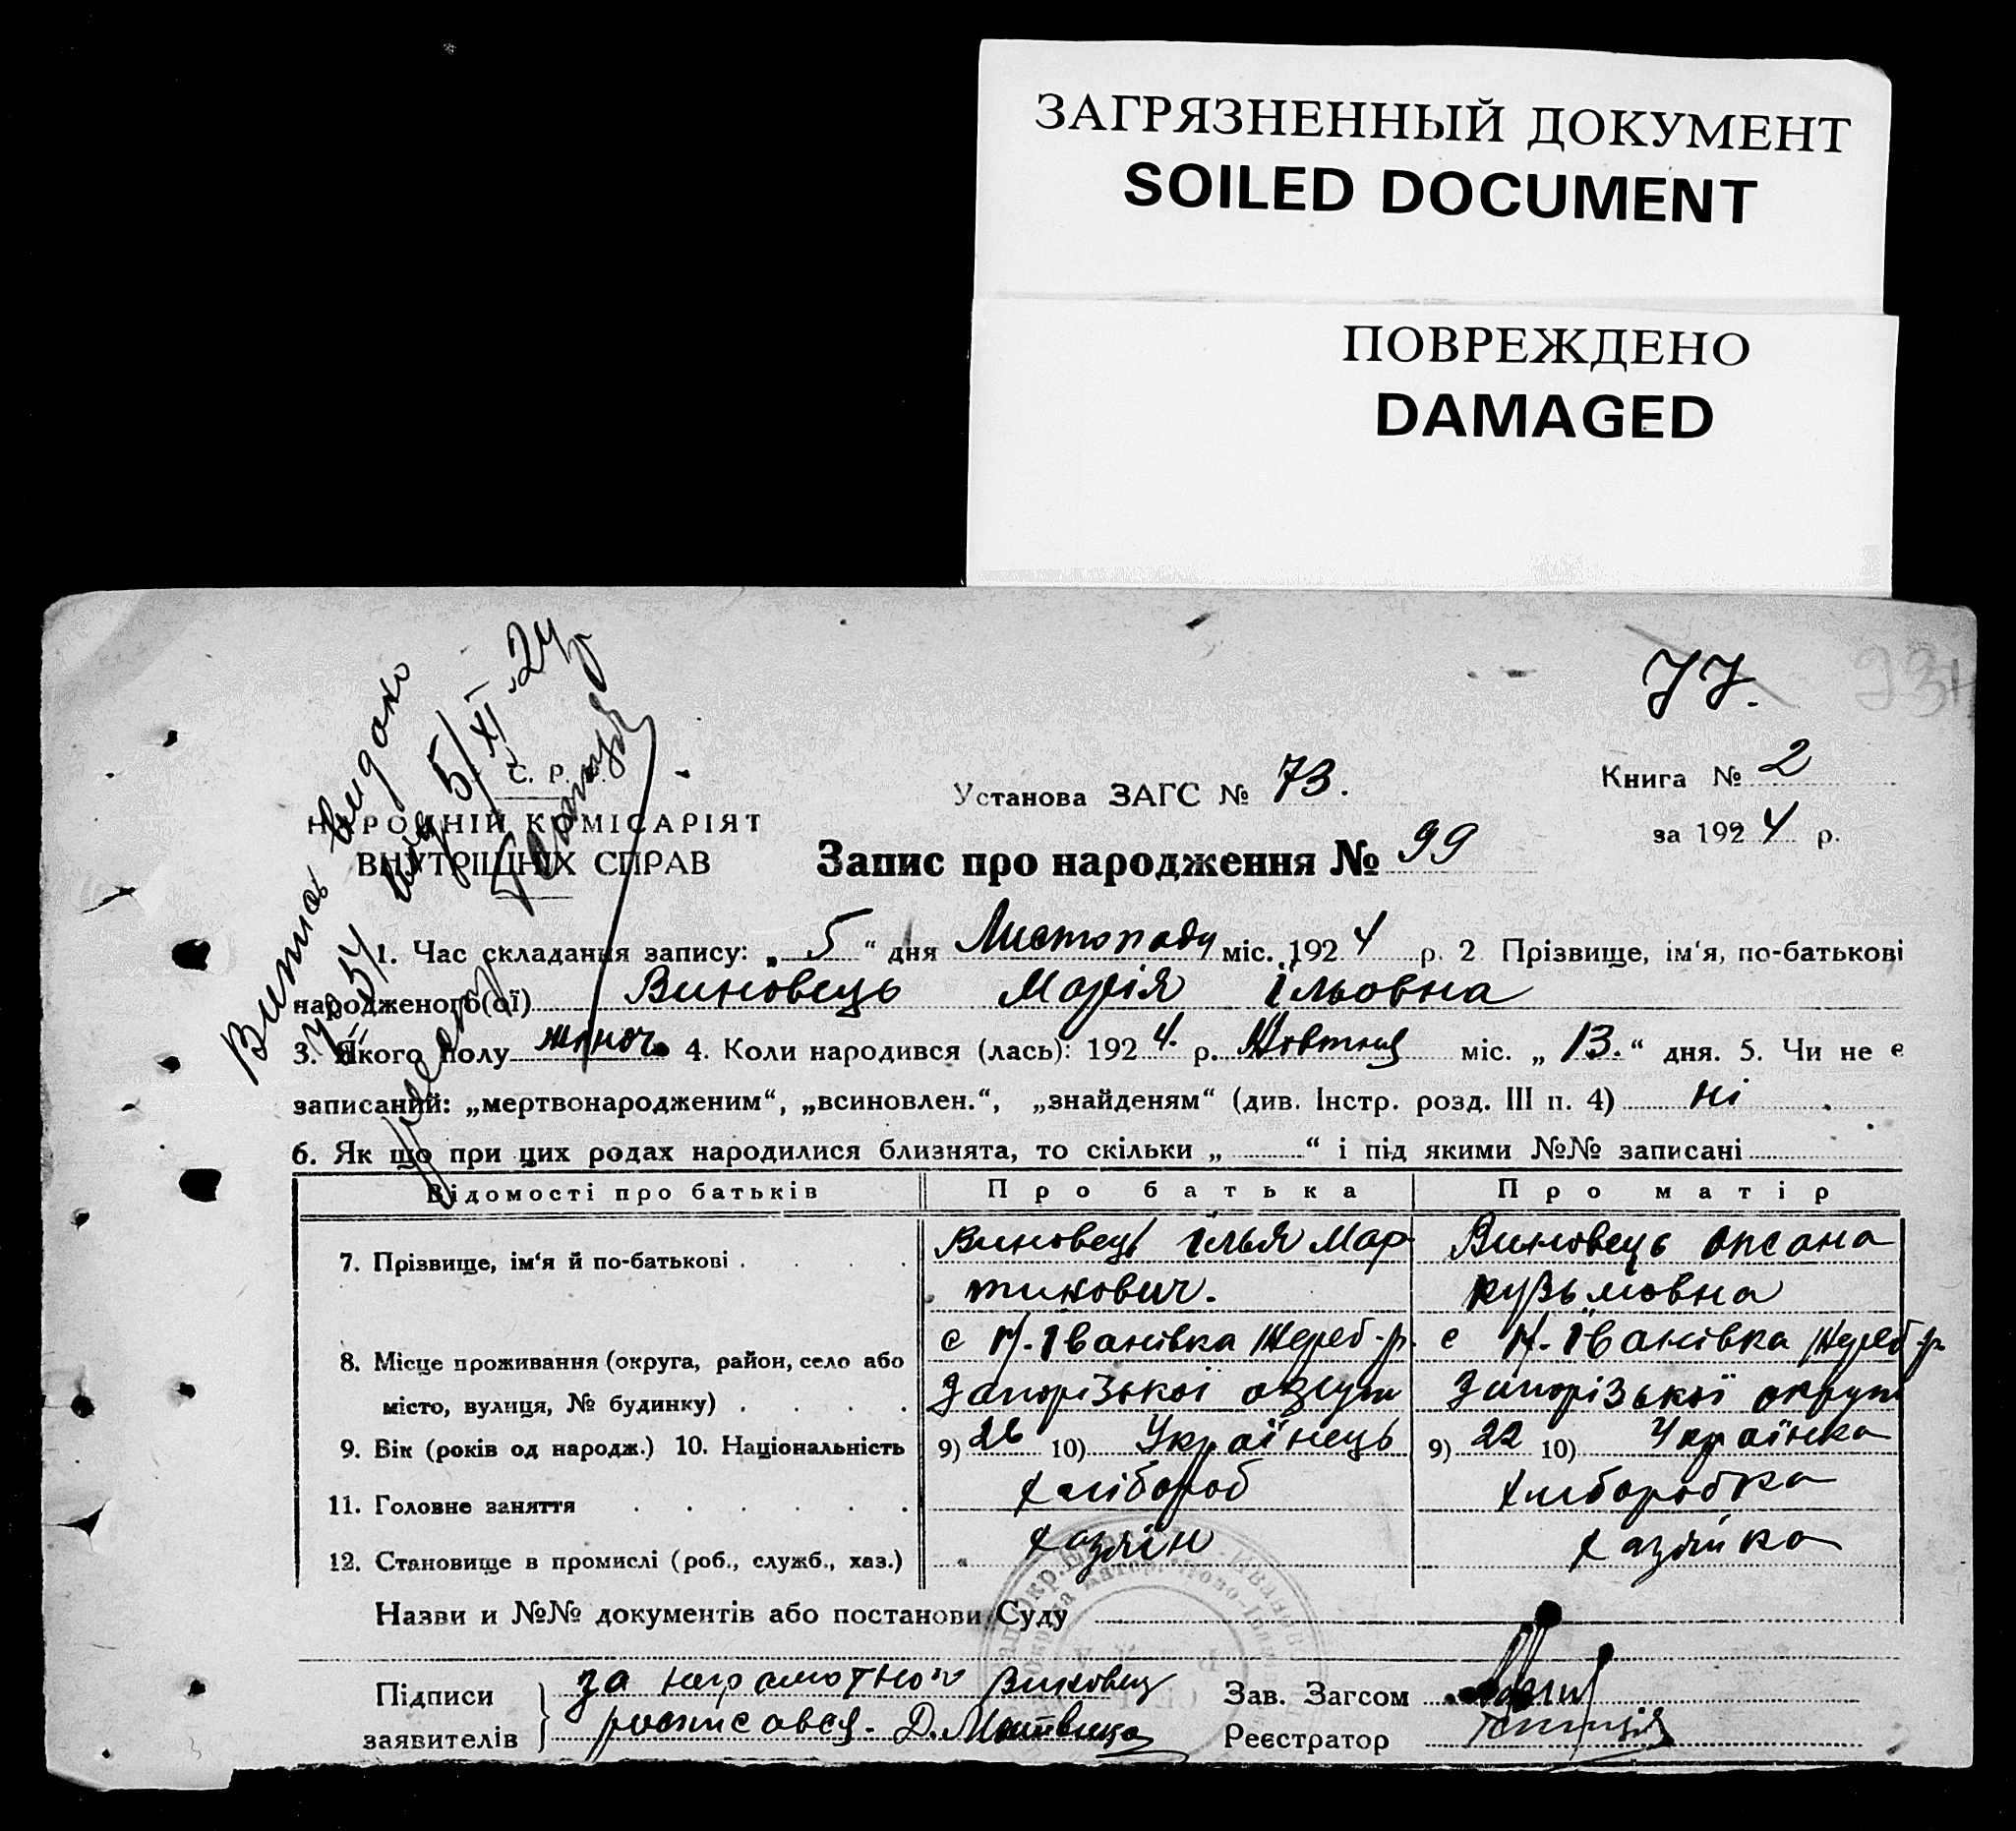 ЗАГРЯЗНЕННЫЙ ДОКУМЕНТ
SOILED DOCUMENT
ПОВРЕЖДЕНО
DAMAGED
77.
Витяг видано
5/XI 24р
С. Р.
НАРОДНІЙ КОМІСАРІЯТ
ВНУТРІШНІХ СПРАВ
Установа ЗАГС № 73.
Книга № 2
за 1924 р.
Запис про народження № 99
1. Час складання запису: „ 5 “ дня Листопаду міс. 1924 р. 2 Прізвище, ім‘я, по-батькові
народженого(ої) Виновець Марія Ільовна
3. Якого полу жіноч. 4. Коли народився (лась): 1924. р. Жовтня міс. „ 13. “ дня. 5. Чи не є
записаний: „мертвонародженим“, „всиновлен.“, „знайденям“ (див. Інстр. розд. III п. 4) ні
6. Як що при цих родах народилися близнята, то скільки „ “ і під якими №№ записані
Відомості про батьків Про батька Про матір
7. Прізвище, ім‘я й по-батькові Виновець Ілья Мар- Виновець Оксана
тинович. Кузьмовна
с Н. Іванівка Жереб-р. с Н. Іванівка Жереб-р.
8. Місце проживання (округа, район, село або
місто, вулиця, № будинку) Запорізької округи Запорізької округи
9. Вік (років од народж.) 10. Національність 9) 26 10) Українець 9) 22 10) Українка
11. Головне заняття хлібороб хліборобка
12. Становище в промислі (роб., служб., хаз.) хазяїн хазяйка
Назви и №№ документів або постанови Суду
Підписи за неграмотної Виновець Зав. Загсом
заявителів росписавсь. Д. Реєстратор